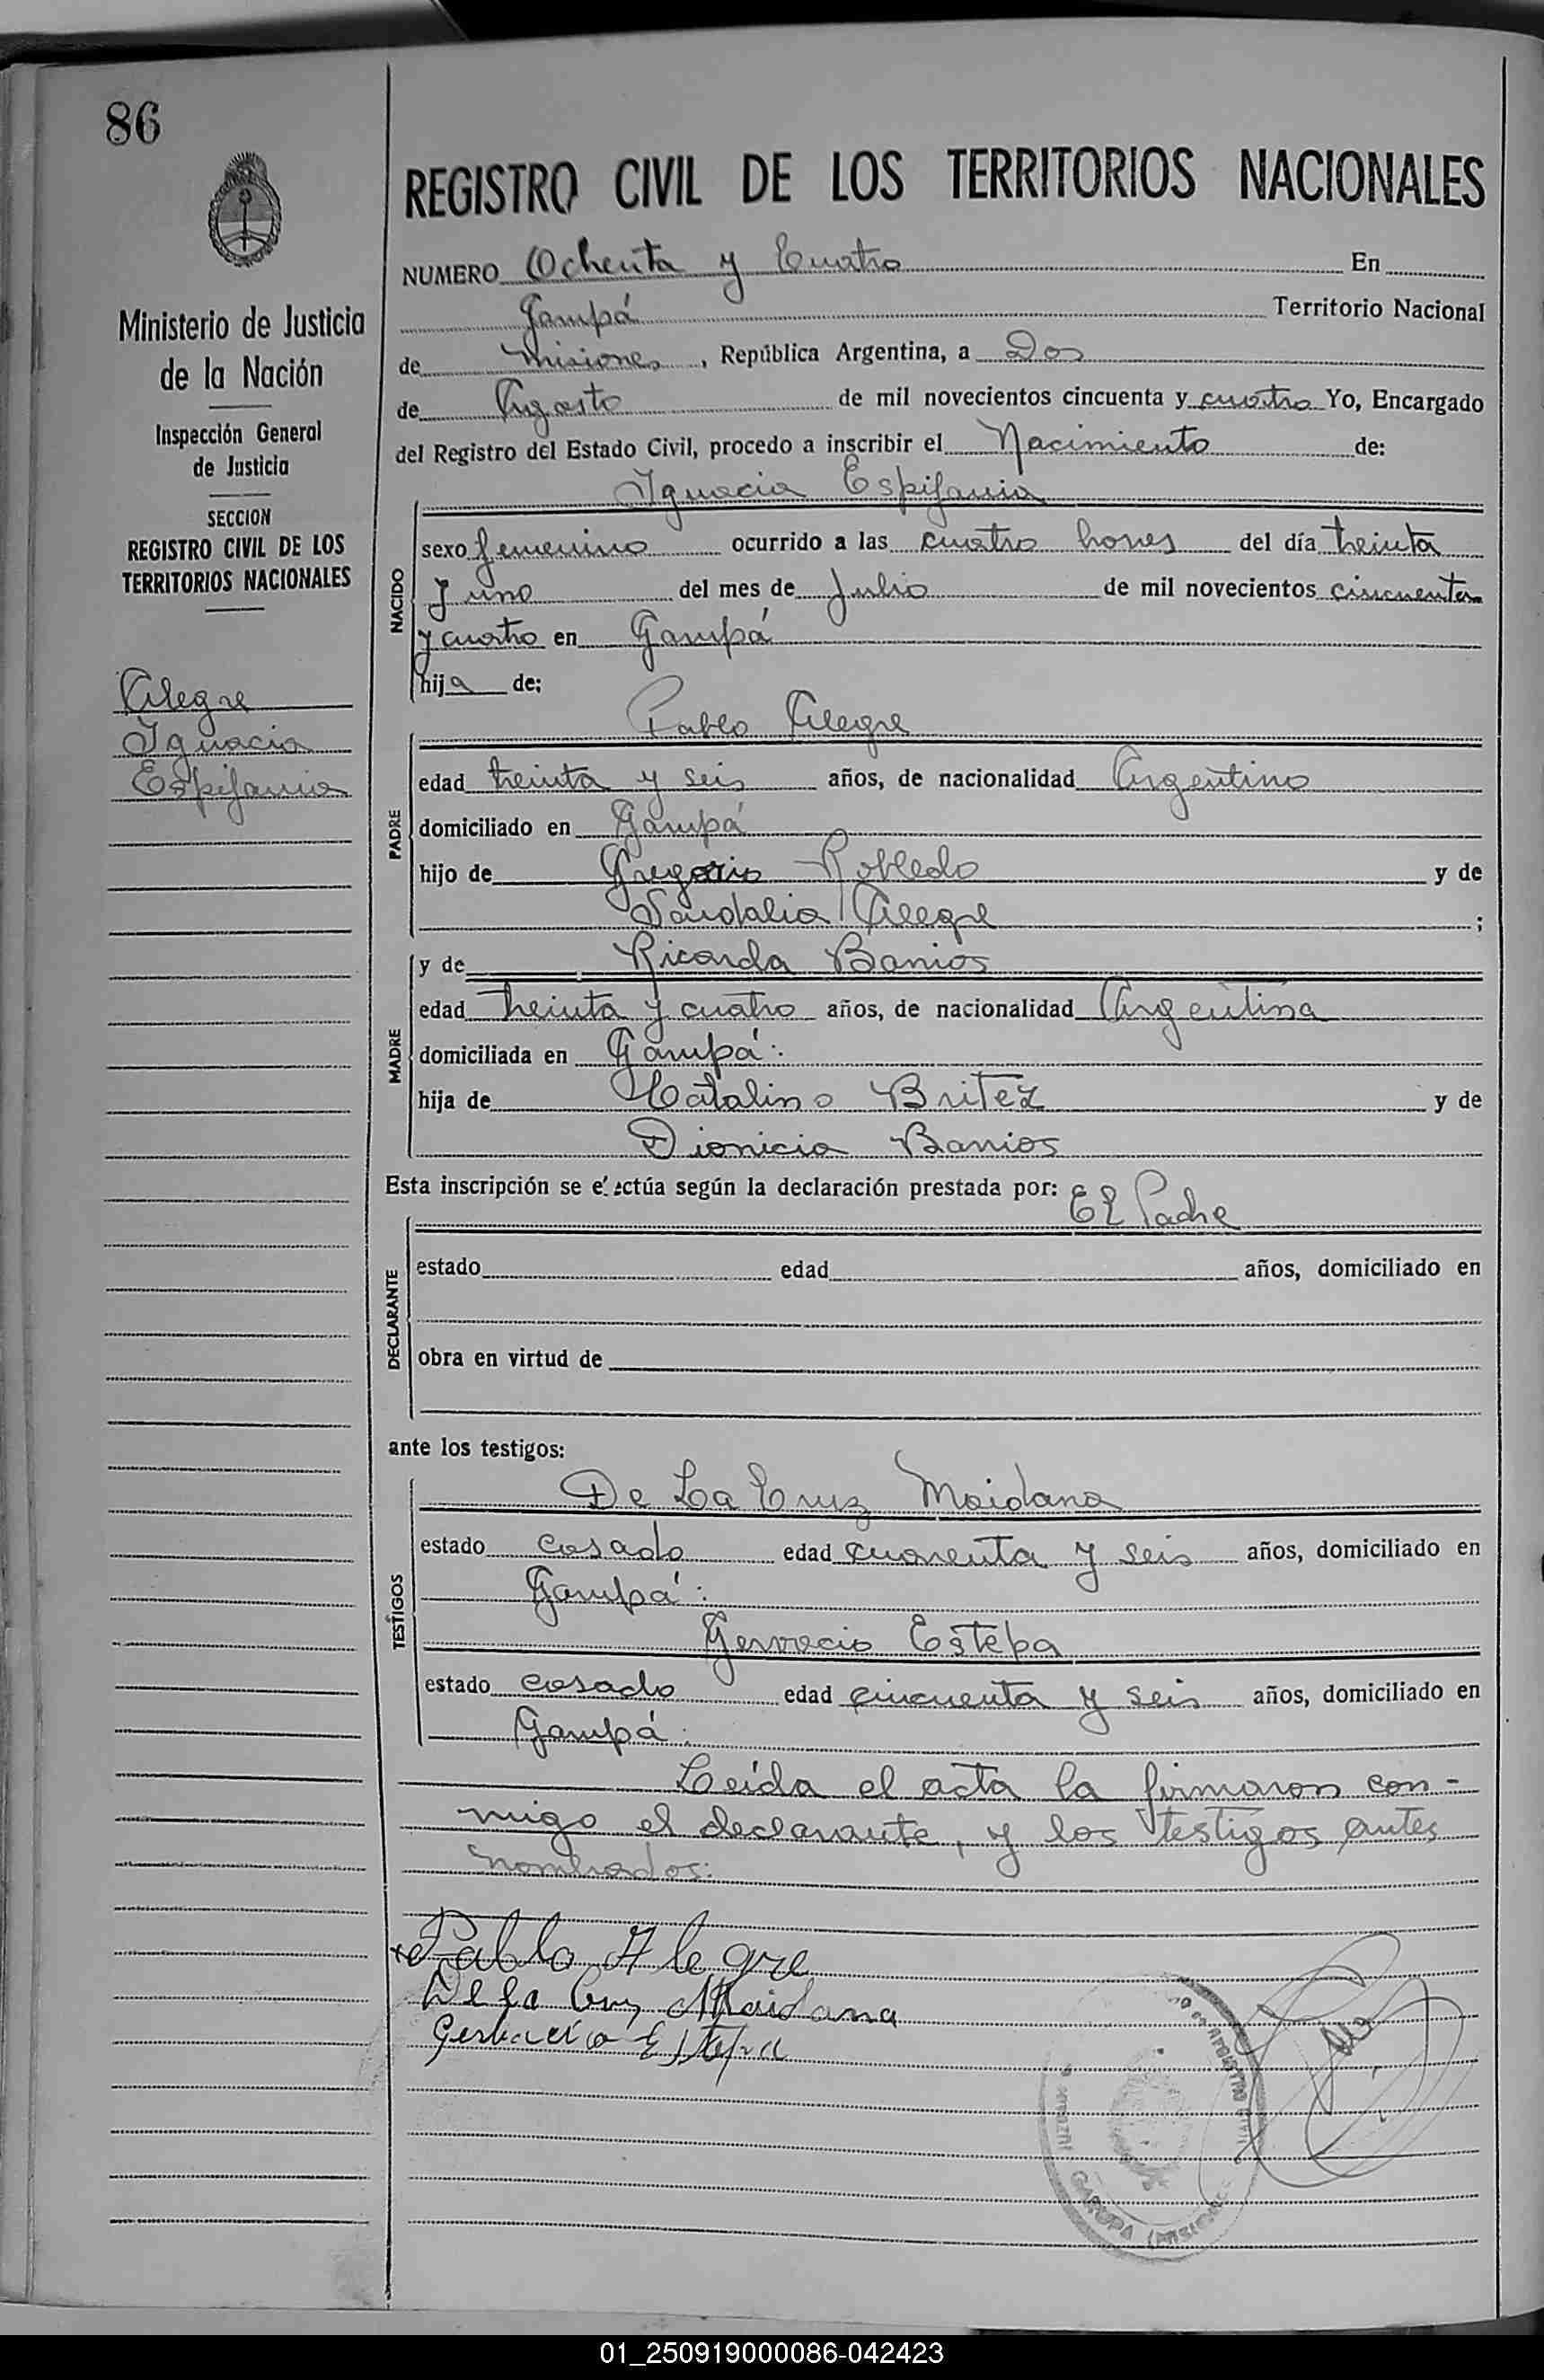 86
REGISTRO CIVIL DE LOS TERRITORIOS NACIONALES
NUMERO Ochenta y Cuatro En
Garupá Territorio Nacional
de Misiones, República Argentina, a Dos
de Agosto de mil novecientos cincuenta y cuatro Yo, Encargado
del Registro del Estado Civil, procedo a inscribir el Nacimiento de:
Ministerio de Justicia
de la Nación
Inspección General
de Justicia
SECCION
REGISTRO CIVIL DE LOS
TERRITORIOS NACIONALES
Alegre
Ignacia
Espifania
NACIDO
Ignacia Espifania
sexo femenino ocurrido a las cuatro hores del día treinta
y uno del mes de Julio de mil novecientos cincuenta
y cuatro en Garupá
hija de:
PADRE
Pablo Alegre
edad treinta y seis años, de nacionalidad Argentino
domiciliado en Garupá
hijo de Gregorio Robledo y de
Sandalia Alegre ;
MADRE
y de Ricarda Barrios
edad treinta y cuatro años, de nacionalidad Argentina
domiciliada en Garupá:
hija de Catalino Britez y de
Dionicia Barrios
Esta inscripción se efectúa según la declaración prestada por: El Padre
DECLARANTE
estado edad años, domiciliado en
obra en virtud de
ante los testigos:
TESTIGOS
De La Cruz Maidana
estado casado edad cuarenta y seis años, domiciliado en
Garupá:
Gervacio Estepa
estado casado edad cincuenta y seis años, domiciliado en
Garupá.
Leída el acta la firmaron con-
migo el declarante, y los testigos antes
nombrados:
Pablo Alegre
De la Cruz Maidana
Gerbacio Estepa
GARUPA (MISIONES
01_250919000086-042423